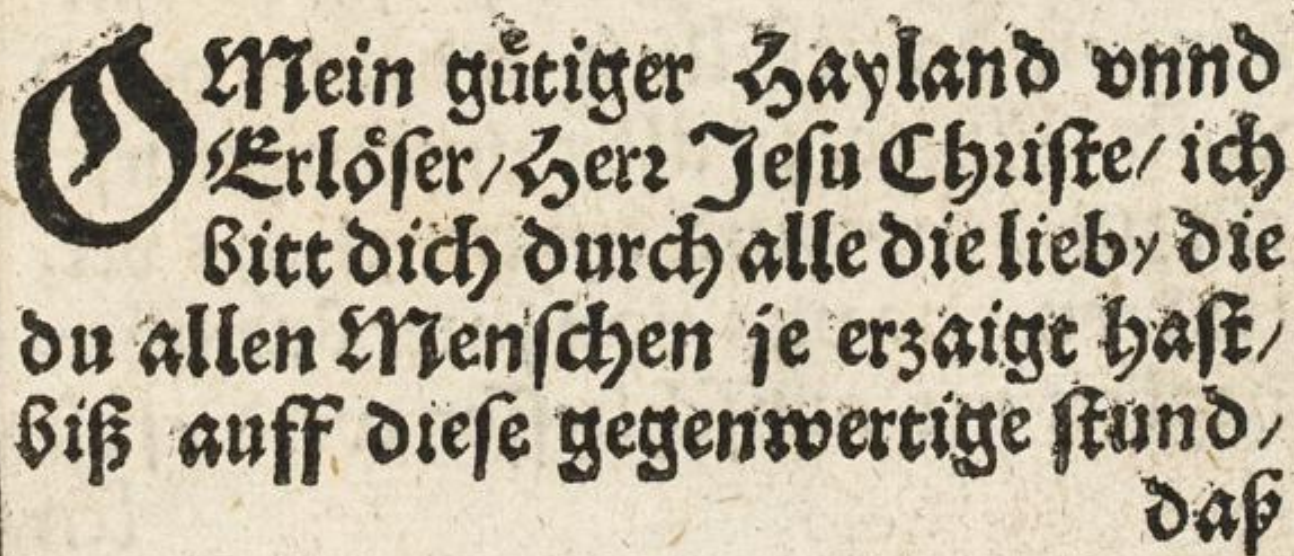 O Mein guͤtiger Hayland vnnd
Erloͤſer/ Herꝛ Jeſu Chꝛiſte/ ich
bitt dich durch alle die lieb/ die
du allen Menſchen je erzaigt haſt/
biß auff dieſe gegenwertige ſtund/
daß